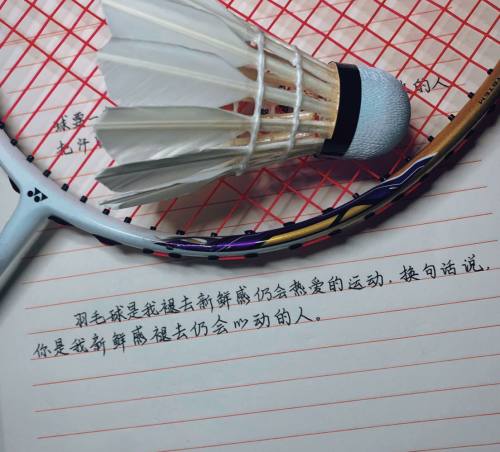 球
的人
羽毛球是我褪去新鲜感仍会热爱的运动,换句话说,
你是我新鲜感褪去仍会心动的人。